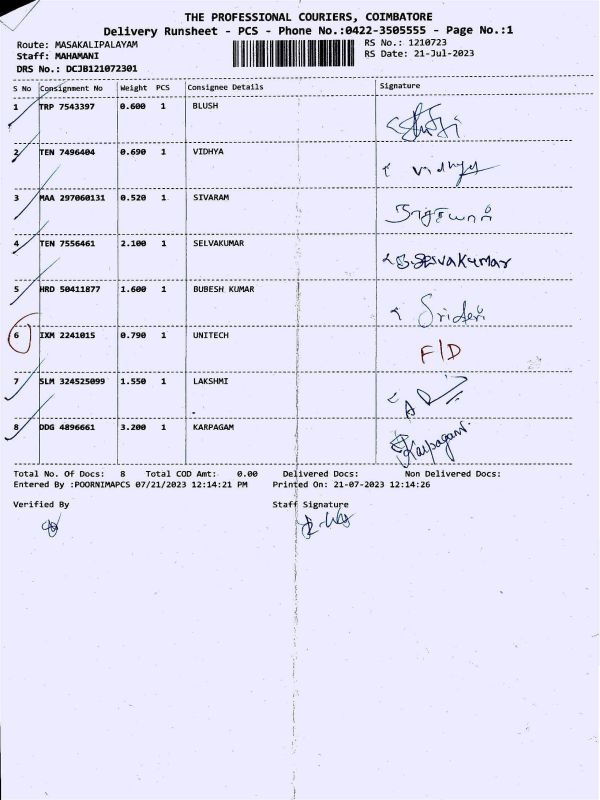 THE PROFESSIONAL COURIERS, COIMBATORE
Delivery Runsheet - PCS - Phone No.:0422-3505555 - Page No.:1
Route: MASAKALIPALAYAM RS No.: 1210723
Staff: MAHAMANI RS Date: 21-Jul-2023
DRS No.: DCJB121072301
S No Consignment No Weight PCS Consignee Details Signature
1 TRP 7543397 0.600 1 BLUSH
2 TEN 7496404 0.690 1 VIDHYA Vidhya
3 MAA 297060131 0.520 1 SIVARAM
4 TEN 7556461 2.100 1 SELVAKUMAR
5 HRD 50411877 1.600 1 BUBESH KUMAR Sridevi
6 IXM 2241015 0.790 1 UNITECH F/D
7 SLM 324525099 1.550 1 LAKSHMI
8 DDG 4896661 3.200 1 KARPAGAM Karpagam
Total No. Of Docs: 8 Total COD Amt: 0.00 Delivered Docs: Non Delivered Docs:
Entered By :POORNIMAPCS 07/21/2023 12:14:21 PM Printed On: 21-07-2023 12:14:26
Verified By Staff Signature